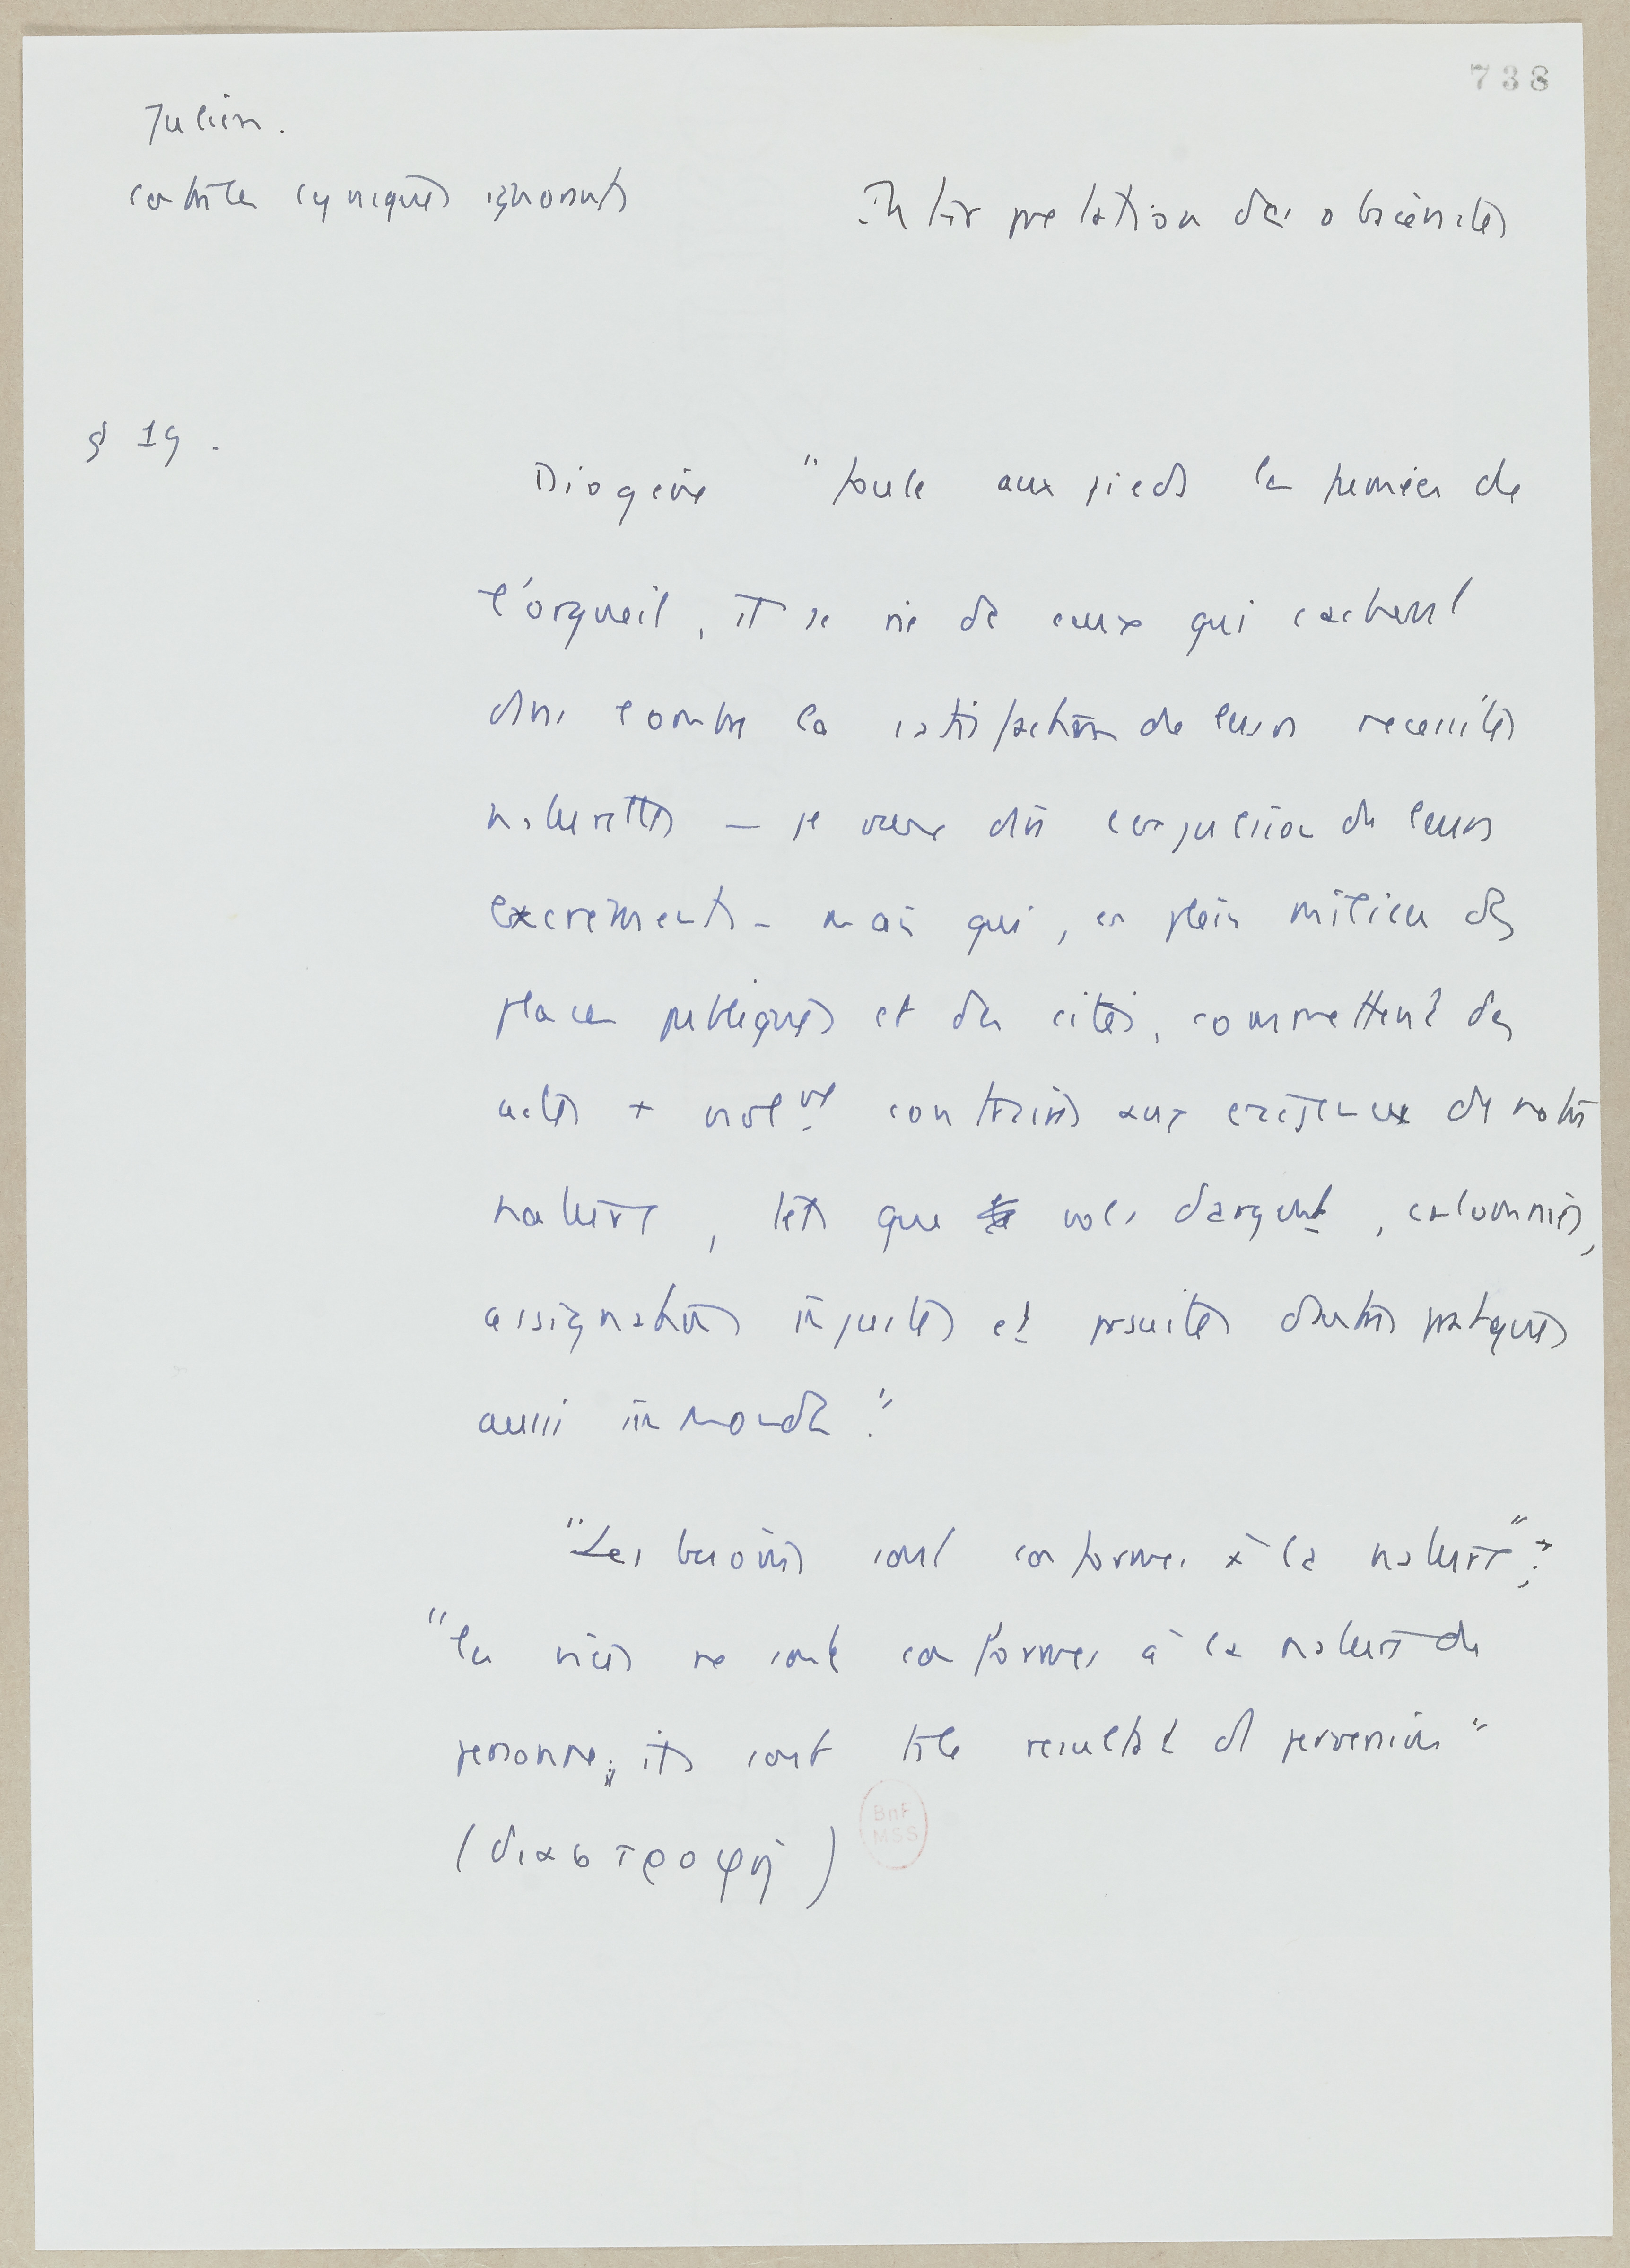 738
Julien.
contre les cyniques ignorants
Interprétation des obscénités
§ 19.
Diogène "foule aux pieds les fumées de
l'orgueil, il se rie de ceux qui cachent
dans l'ombre la satisfaction de leurs necessités
naturelles – je veux dire l'expulsion de leurs
excréments – mais qui, en plein milieu des
places publiques et des cités, commettent des
actes + violts contraires aux exigences de notre
nature, tels que vols d'argent, calomnies,
assignations injustes et poursuites d'autres pratiques
aussi immondes."
"Les besoins sont conformes à la nature";
"les vices ne sont conformes à la nature de
personne; ils sont tls le resultat d perversion"
(διαστροφή)
BnF
MSS